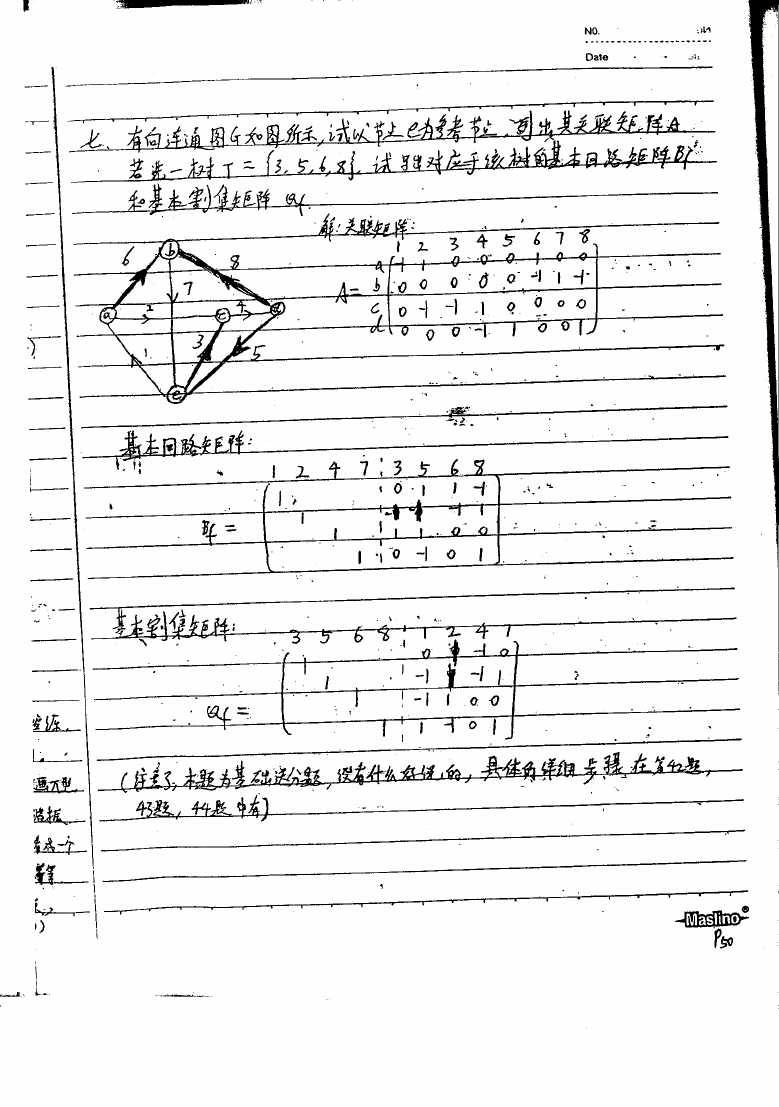 NO.
Date
七、有向连通图G如图所示,试以节点e为参考节点,列出其关联矩阵A
若选一树T={3,5,6,8},试写出对应于该树的基本回路矩阵Bf
和基本割集矩阵Qf.
解:关联矩阵:
1 2 3 4 5 6 7 8
A=
a -1 1 0 0 0 1 0 0
b 0 0 0 0 0 -1 1 -1
c 0 -1 -1 1 0 0 0 0
d 0 0 0 -1 1 0 0 1
b
6 8
7
a 2 c 4 d
3
1 5
e
基本回路矩阵:
1 2 4 7 3 5 6 8
1 0 1 1 -1
1 -1 1
Bf =
1 1 1 0 0
1 0 -1 0 1
基本割集矩阵:
3 5 6 8 1 2 4 7
1 0 -1 0
1 -1 -1 1
Qf =
1 -1 1 0 0
1 1 -1 0 1
(注意了,本题为基础送分题,没有什么好说的,具体的详细步骤在第42题,
43题,44题中有)
Maslino®
P50